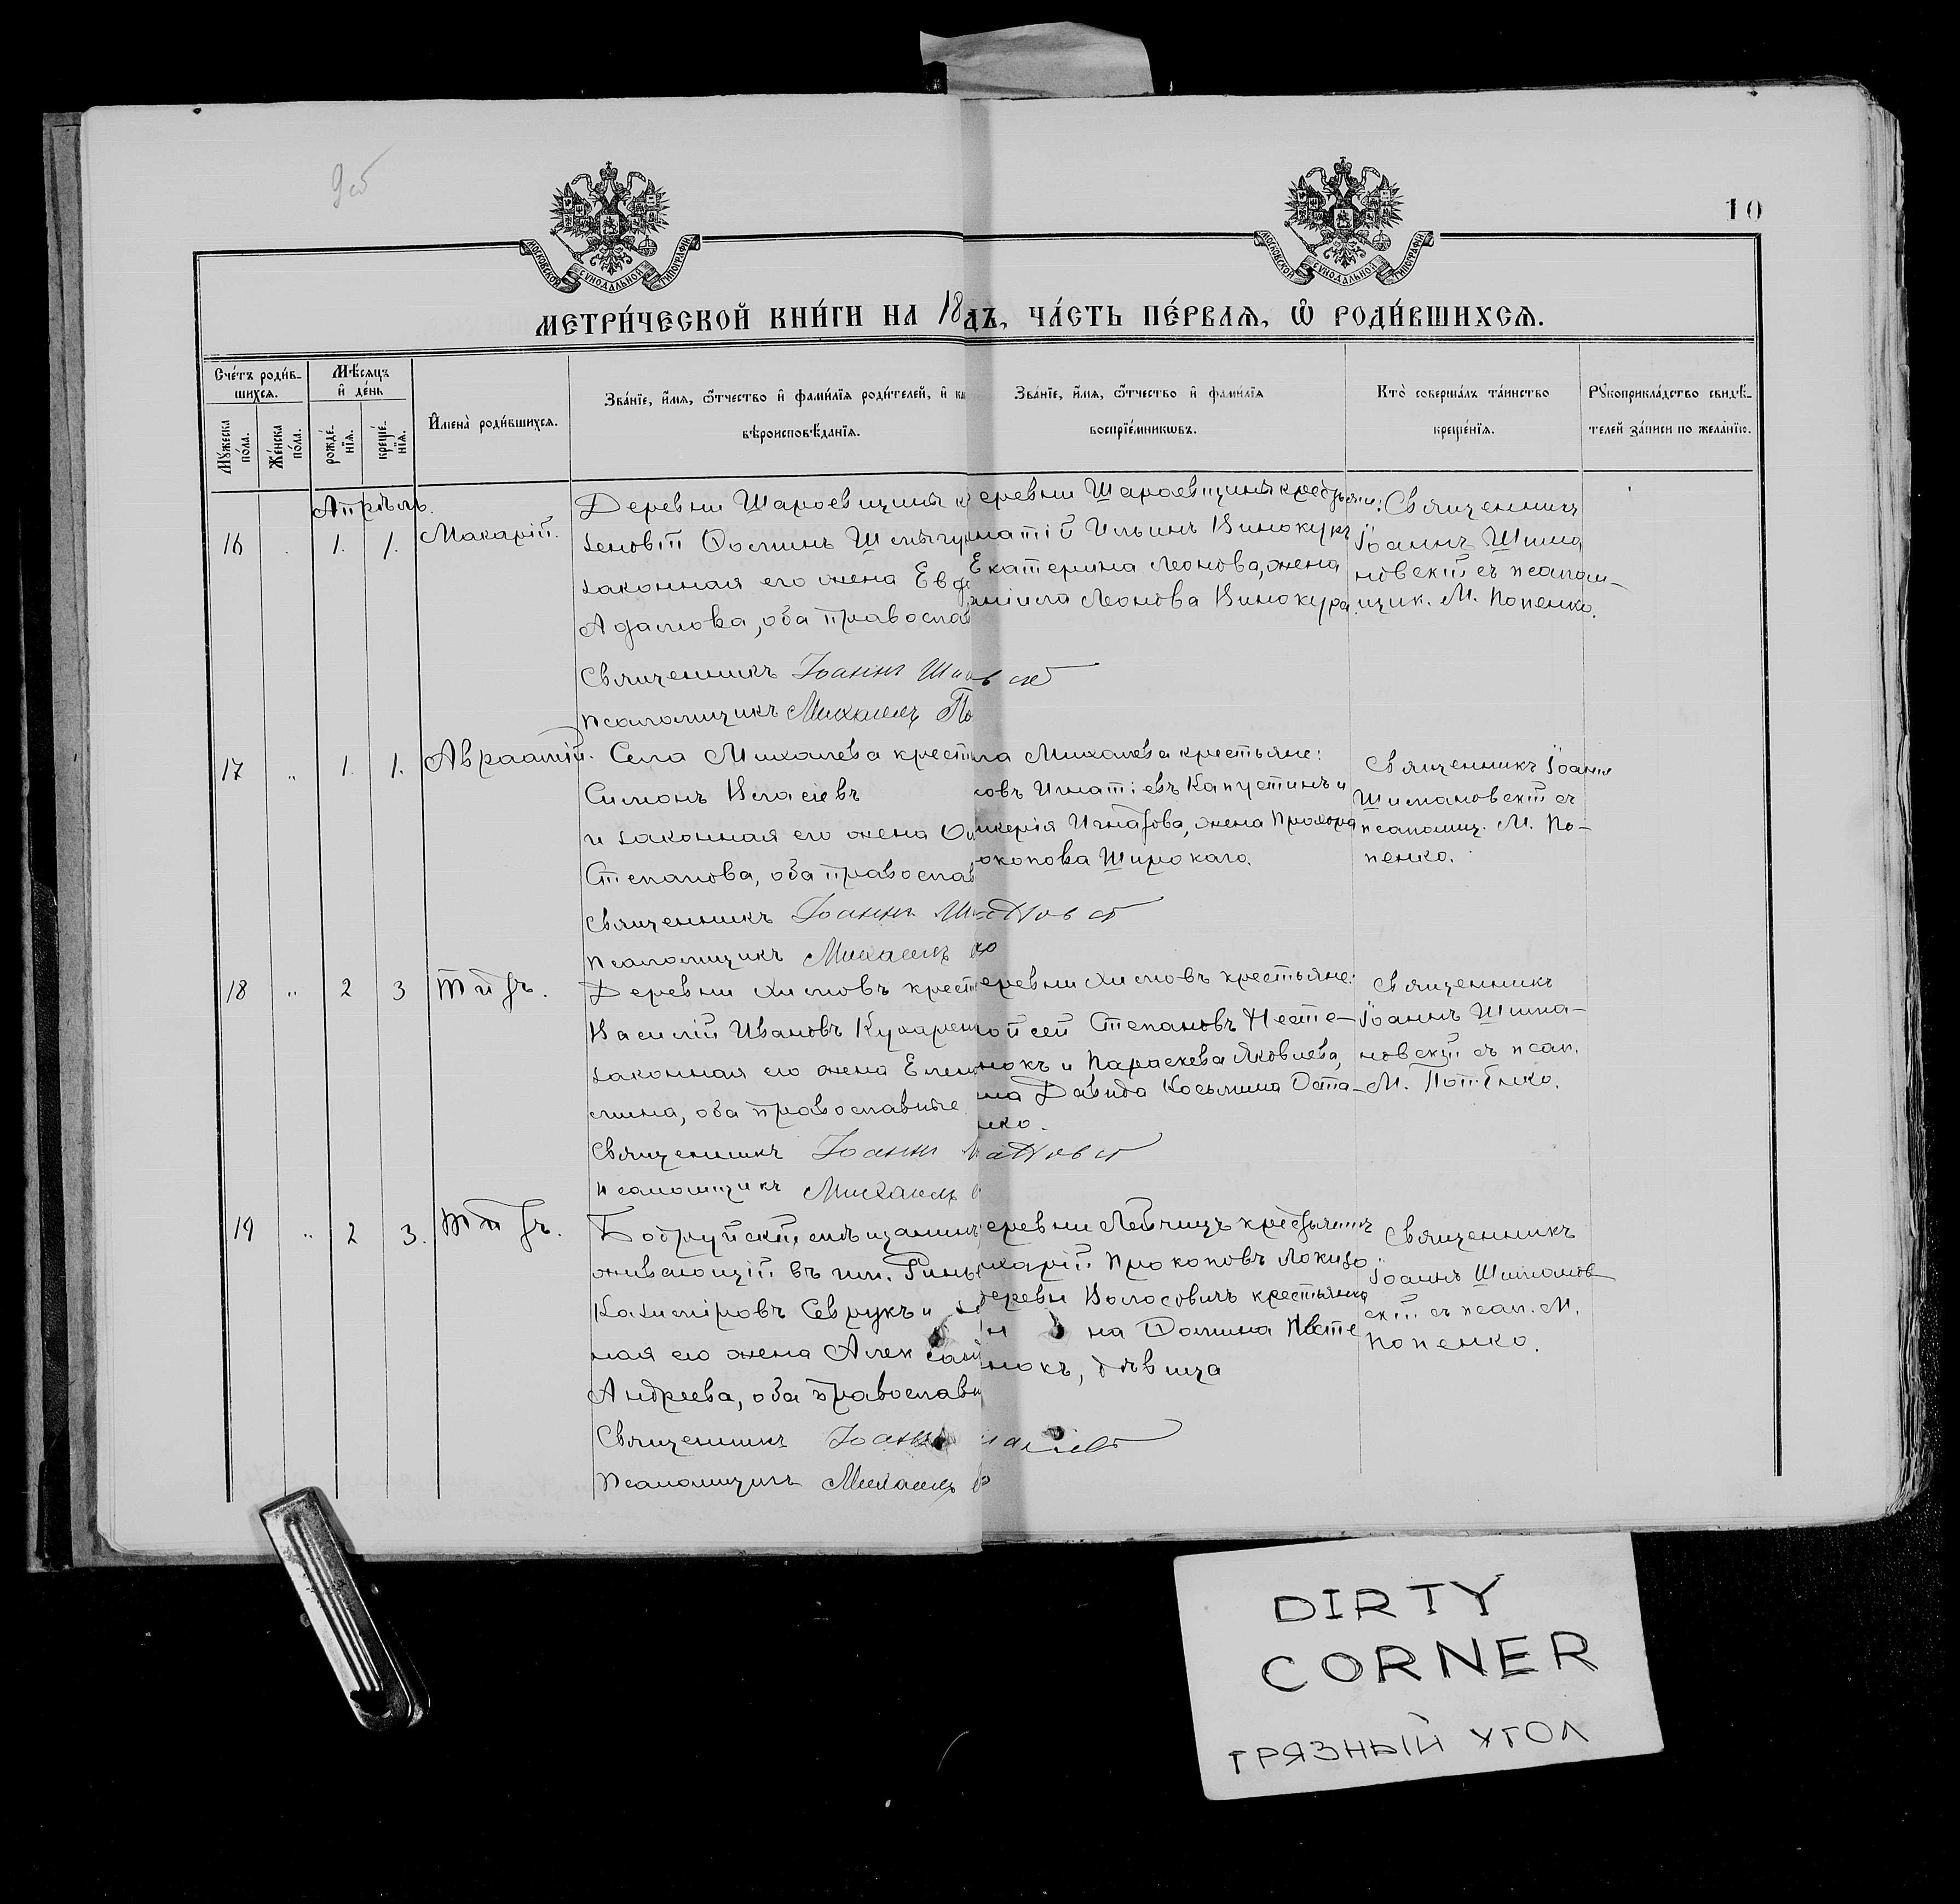 9об
10
МОСКОВСКОЙ СѴНОДАЛЬНОЙ ТИПОГРАФІИ
МОСКОВСКОЙ СѴНОДАЛЬНОЙ ТИПОГРАФІИ
МЕТРИ́ЧЕСКОЙ КНИ́ГИ НА 18
дъ, ЧА́СТЬ ПЕ́РВАѦ, Ѡ҆ РОДИ́ВШИХСѦ.
Сче́тъ роди́в-
шихсѧ.
Мꙋ́жеска
по́ла.
Же́нска
по́ла.
Мѣ́сѧцъ
и҆ де́нь
рожде́-
нїѧ.
креще́-
нїѧ.
И҆мена̀ роди́вшихсѧ.
Зва́нїе, и҆́мѧ, ѻ҆́тчество и҆ фами́лїѧ роди́телей, и҆
вѣроисповѣ́данїѧ.
Зва́нїе, и҆́мѧ, ѻ҆́тчество и҆ фами́лїѧ
воспрїе́мникѡвъ.
Кто̀ соверша́лъ та́инство
креще́нїѧ.
Рꙋкоприкла́дство свидѣ́-
телей за́писи по жела́нїю.
Апрѣль.
16 1. 1. Макарій.
Деревни Шароевщины к
Ѳоминъ
законная его жена Евд
Адамова, оба православ
Священникъ Іоаннъ Ши
Псаломщикъ Михаилъ По
еревни Шароевщины крестьяне:
натій Ильинъ Винокуръ
Екатерина Леонова, жена
Леонова Винокура.
Священникъ
Іоаннъ Шима
новскій съ псалом-
щик. М. Попенко.
17 „ 1. 1. Авраамій.
Села Михалева крестья
Симонъ Власіевъ
и законная его жена
Степанова, оба православ
Священникъ Іоаннъ Ши
Псаломщикъ Михаилъ
ла Михалева крестьяне:
ковъ Игнатіевъ Капустинъ и
икерія Игнатова, жена Прохора
окопова Широкаго.
Священникъ Іоаннъ
Шимановскій съ
псаломщ. М. По-
пенко.
18 „ 2 3 Титъ.
Деревни Химовъ крестья
Василій Ивановъ Кухарен
законная его жена Елен
мина, оба православные.
Священникъ Іоаннъ
Псаломщикъ Михаилъ
еревни Химовъ крестьяне:
ойсей Степановъ Несте-
нокъ и Параскева Яковлева,
на Давида Косьмина Оста-
нко.
Священникъ
Іоаннъ Шима-
новскій съ псал.
М. Попенко.
19 „ 2 3. Титъ.
Бобруйскій мѣщанинъ,
живающій въ им.
Казиміровъ Севрукъ и
ная его жена Александ
Андреева, оба православн
Священникъ Іоаннъ
Псаломщикъ Михаилъ
еревни Лейчицъ крестьянинъ
харій Прокоповъ
деревни Волосовичъ крестьянка
на Домина Несте
нокъ, дѣвица
Священникъ
Іоаннъ Шиманов
скій съ псал. М.
Попенко.
DIRTY
CORNER
ГРЯЗНЫЙ УГОЛ